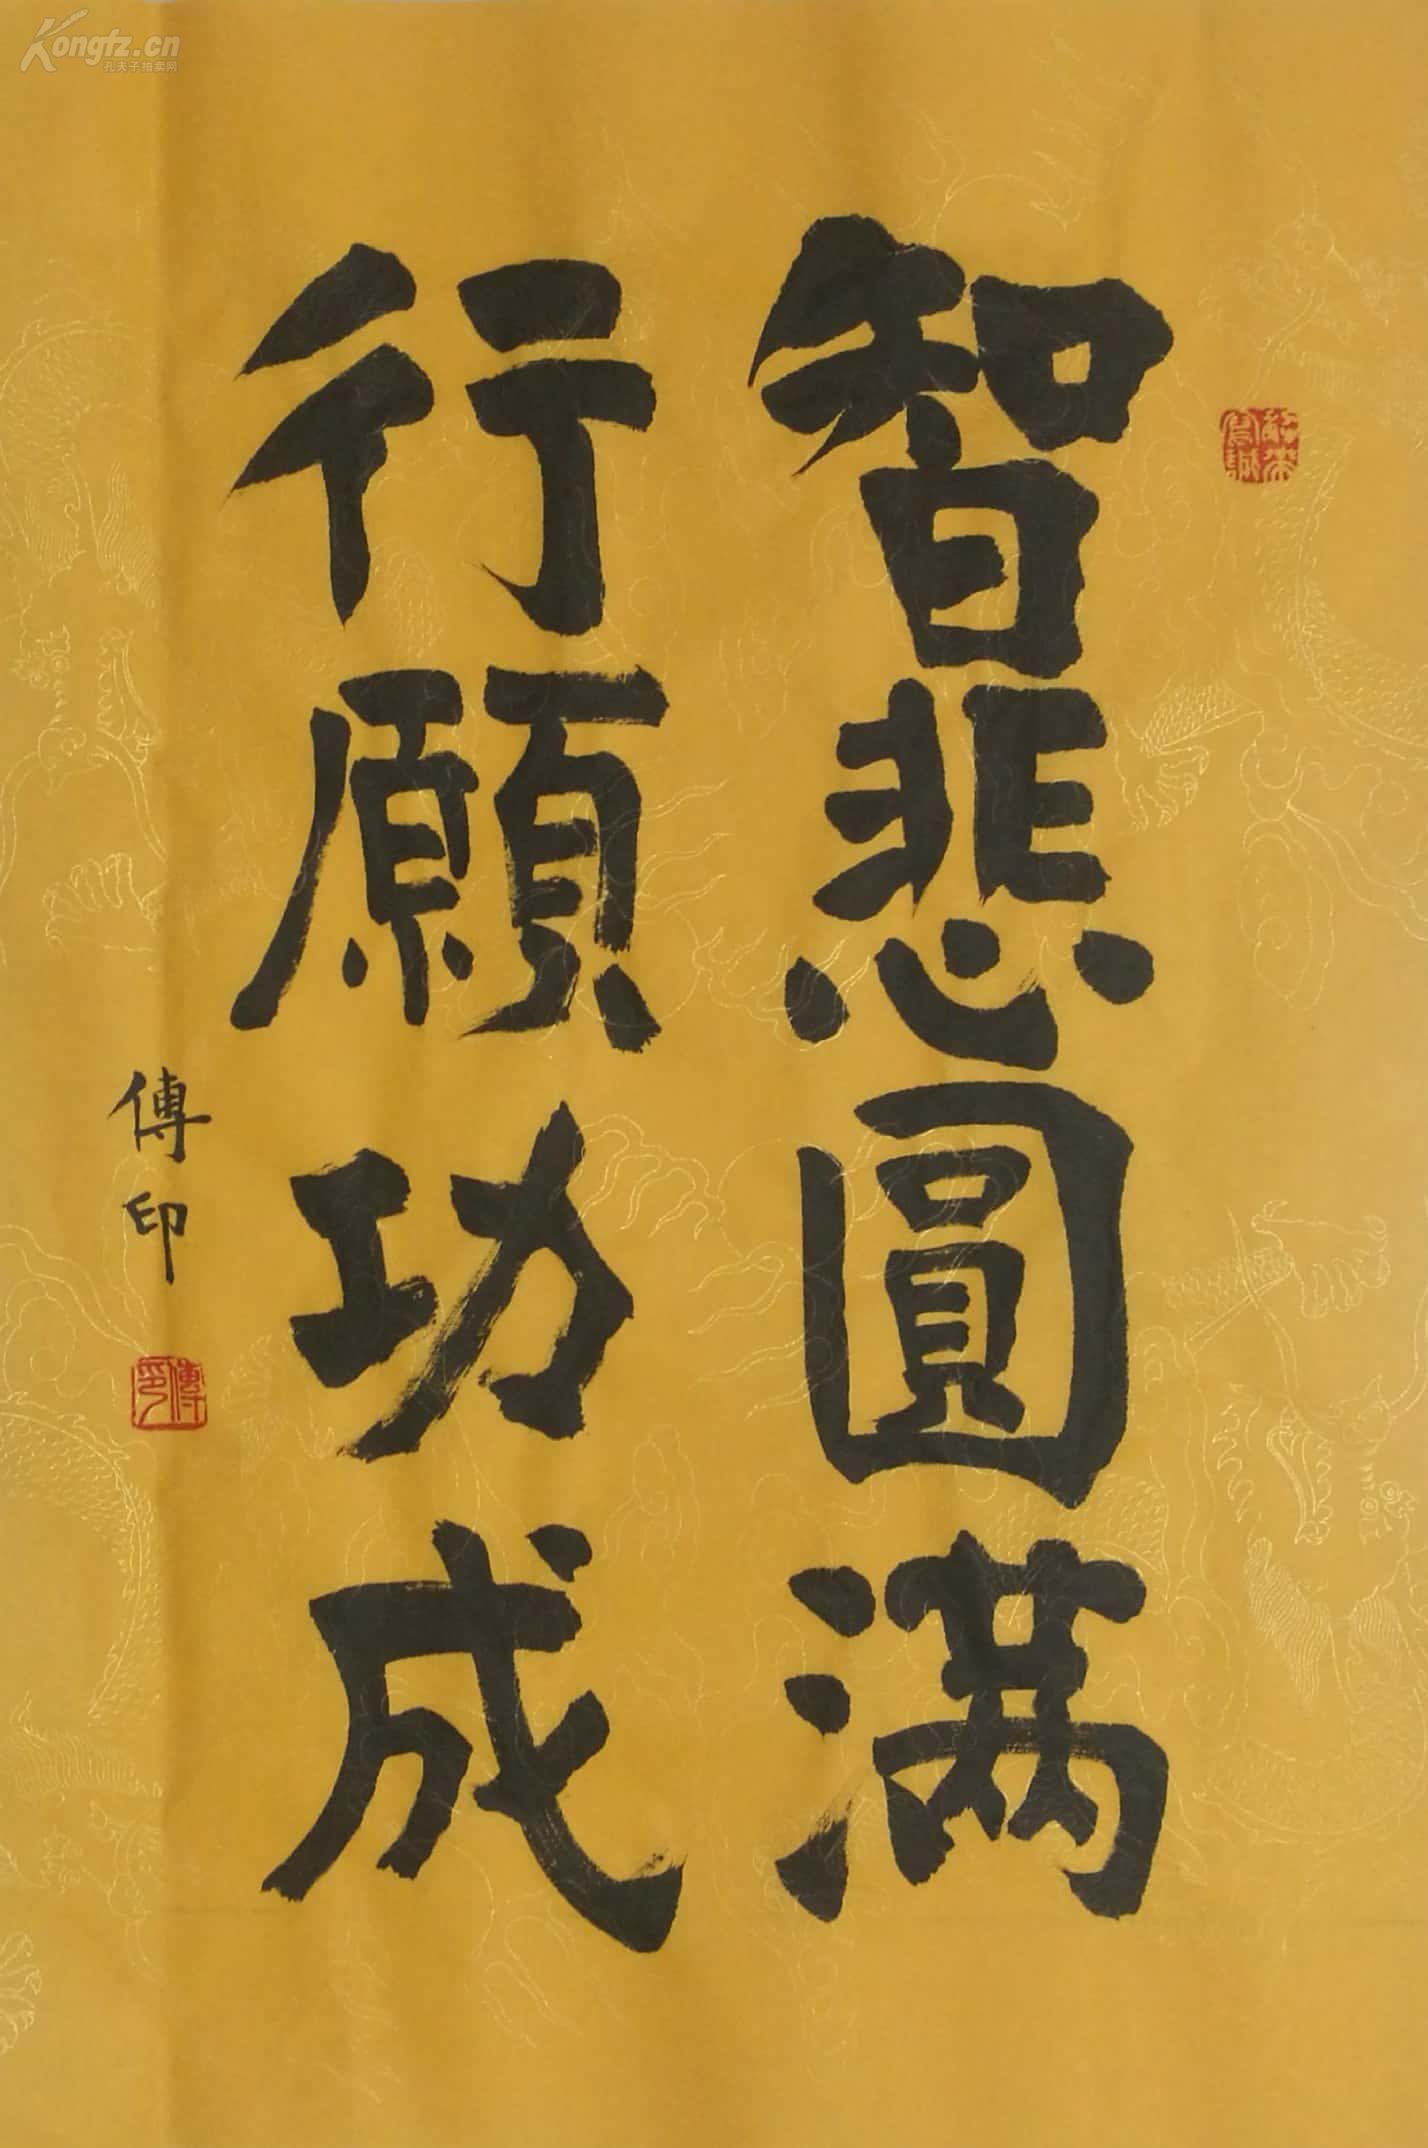 智悲圓满
行願功成
傳印
傳印
Kongfz.cn
孔夫子拍卖网